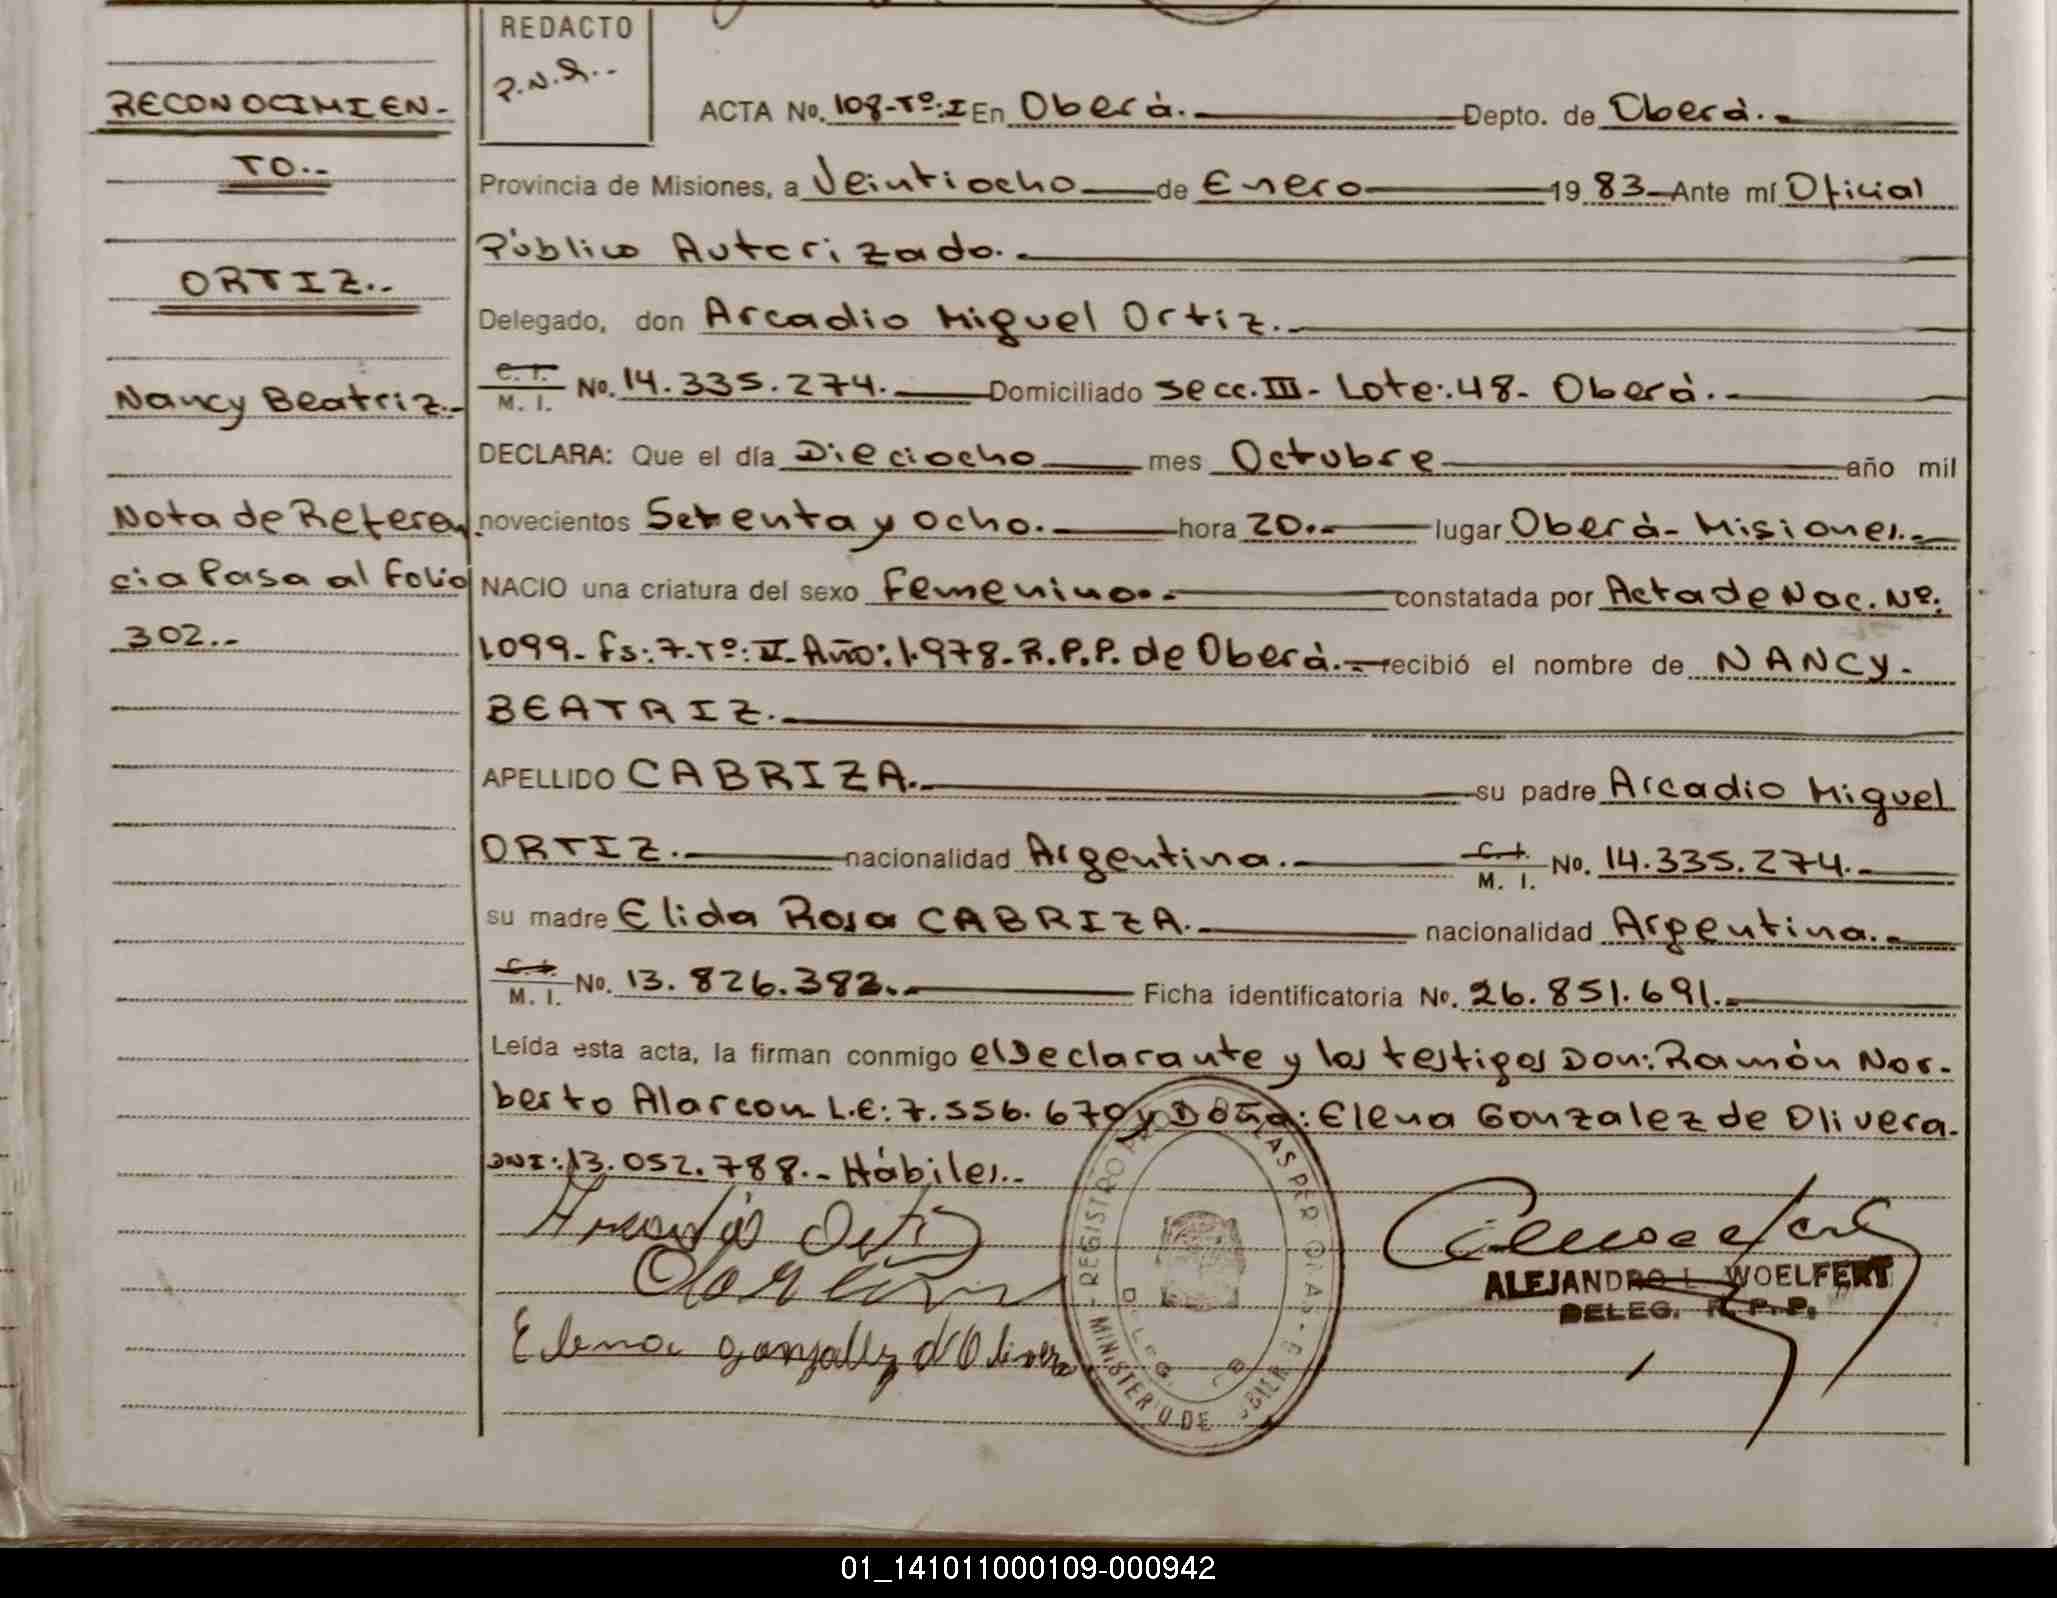 REDACTO
P.N.R..-
RECONOCIMIEN-
TO..-
ORTIZ..-
Nancy Beatriz.-
Nota de Referen
cia Pasa al folio
302..-
ACTA No. 108-Tº:I En Oberá. Depto. de Oberá.
Provincia de Misiones, a Veintiocho de Enero 19 83 Ante mí Oficial
Público Autorizado.
Delegado, don Arcadio Miguel Ortiz.
C. I.
M. I. No. 14.335.274. Domiciliado Secc. III - Lote: 48 - Oberá.
DECLARA: Que el día Dieciocho mes Octubre año mil
novecientos Setenta y ocho. hora 20. lugar Oberá - Misiones.
NACIO una criatura del sexo Femenino. constatada por Acta de Nac. Nº:
1.099 - fs: 7 - Tº: II - Año: 1.978 - R.P.P. de Oberá. recibió el nombre de NANCY.
BEATRIZ.
APELLIDO CABRIZA. su padre Arcadio Miguel
ORTIZ. nacionalidad Argentina. C. I.
M. I. No. 14.335.274.
su madre Elida Rosa CABRIZA. nacionalidad Argentina.
C. I.
M. I. No. 13.826.382. Ficha identificatoria No. 26.851.691.
Leída esta acta, la firman conmigo el Declarante y los testigos Don: Ramón Nor-
berto Alarcon L.E: 7.556.670 y Doña: Elena Gonzalez de Olivera.
DNI: 13.052.788.- Hábiles.-
Arcadio Ortiz
Elena Gonzalez d Olivera
REGISTRO LAS PER
MINISTERIO DE
ALEJANDRO L. WOELFERT
DELEG. R. P. P.
01_141011000109-000942